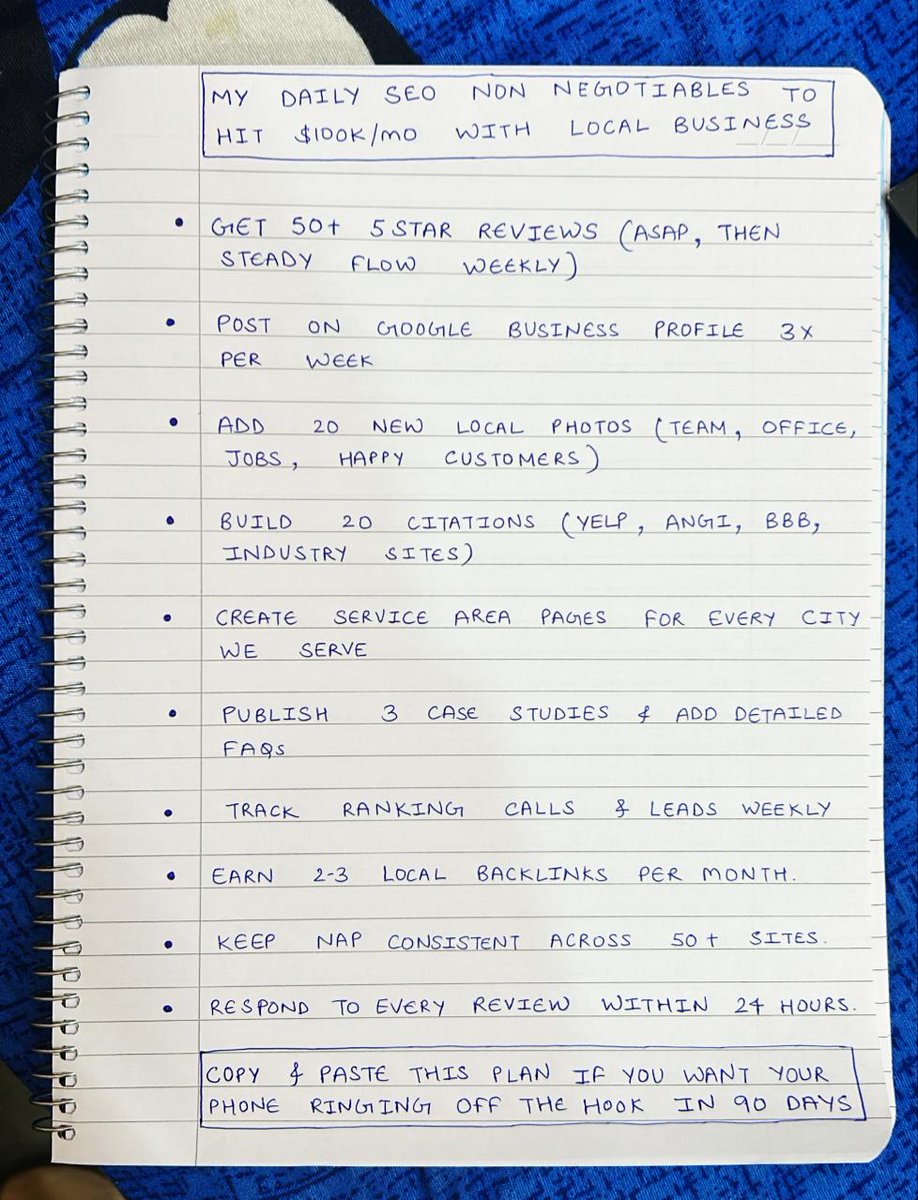 MY DAILY SEO NON NEGOTIABLES TO
HIT $100K/MO WITH LOCAL BUSINESS
• GET 50+ 5 STAR REVIEWS (ASAP, THEN
STEADY FLOW WEEKLY)
• POST ON GOOGLE BUSINESS PROFILE 3X
PER WEEK
• ADD 20 NEW LOCAL PHOTOS (TEAM, OFFICE,
JOBS, HAPPY CUSTOMERS)
• BUILD 20 CITATIONS (YELP, ANGI, BBB,
INDUSTRY SITES)
• CREATE SERVICE AREA PAGES FOR EVERY CITY
WE SERVE
• PUBLISH 3 CASE STUDIES & ADD DETAILED
FAQs
• TRACK RANKING CALLS & LEADS WEEKLY
• EARN 2-3 LOCAL BACKLINKS PER MONTH.
• KEEP NAP CONSISTENT ACROSS 50+ SITES.
• RESPOND TO EVERY REVIEW WITHIN 24 HOURS.
COPY & PASTE THIS PLAN IF YOU WANT YOUR
PHONE RINGING OFF THE HOOK IN 90 DAYS